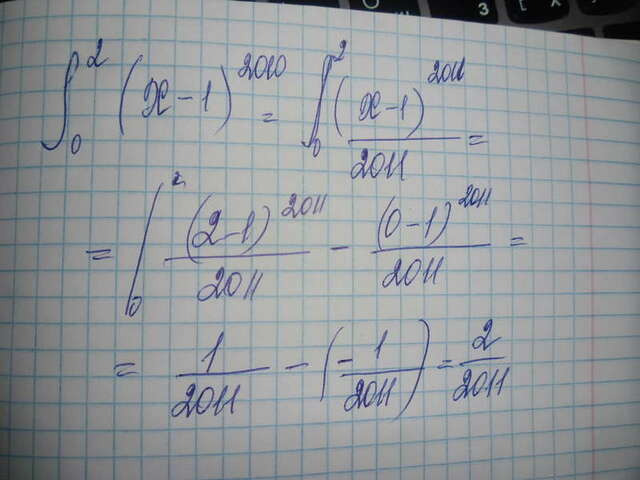 ∫₀² (x-1)²⁰¹⁰ = ∫₀² (x-1)²⁰¹¹/2011 =
= |₀² (2-1)²⁰¹¹/2011 - (0-1)²⁰¹¹/2011 =
= 1/2011 - (-1/2011) = 2/2011